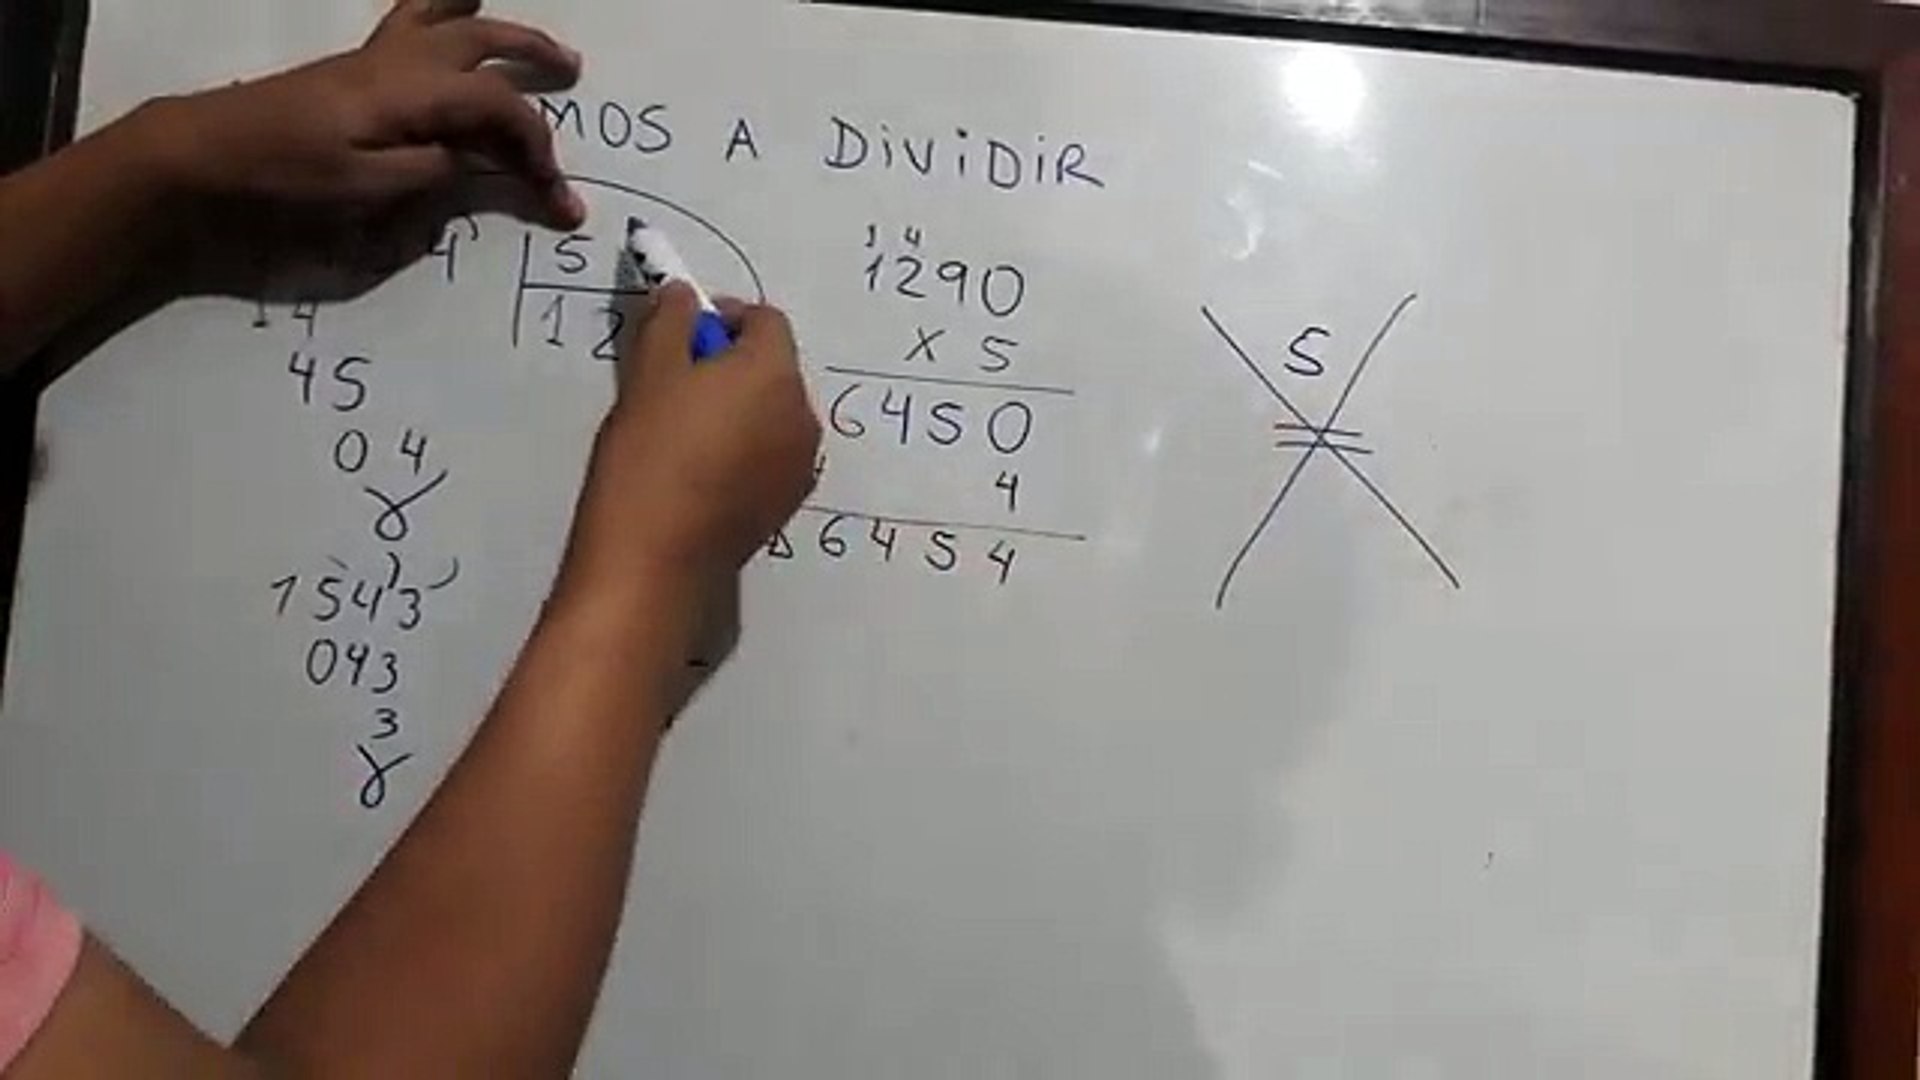 MOS A DiViDiR
4 5
1 2
14
45
04
1543
043
3
1 4
1290
X 5
6450
4
6454
5